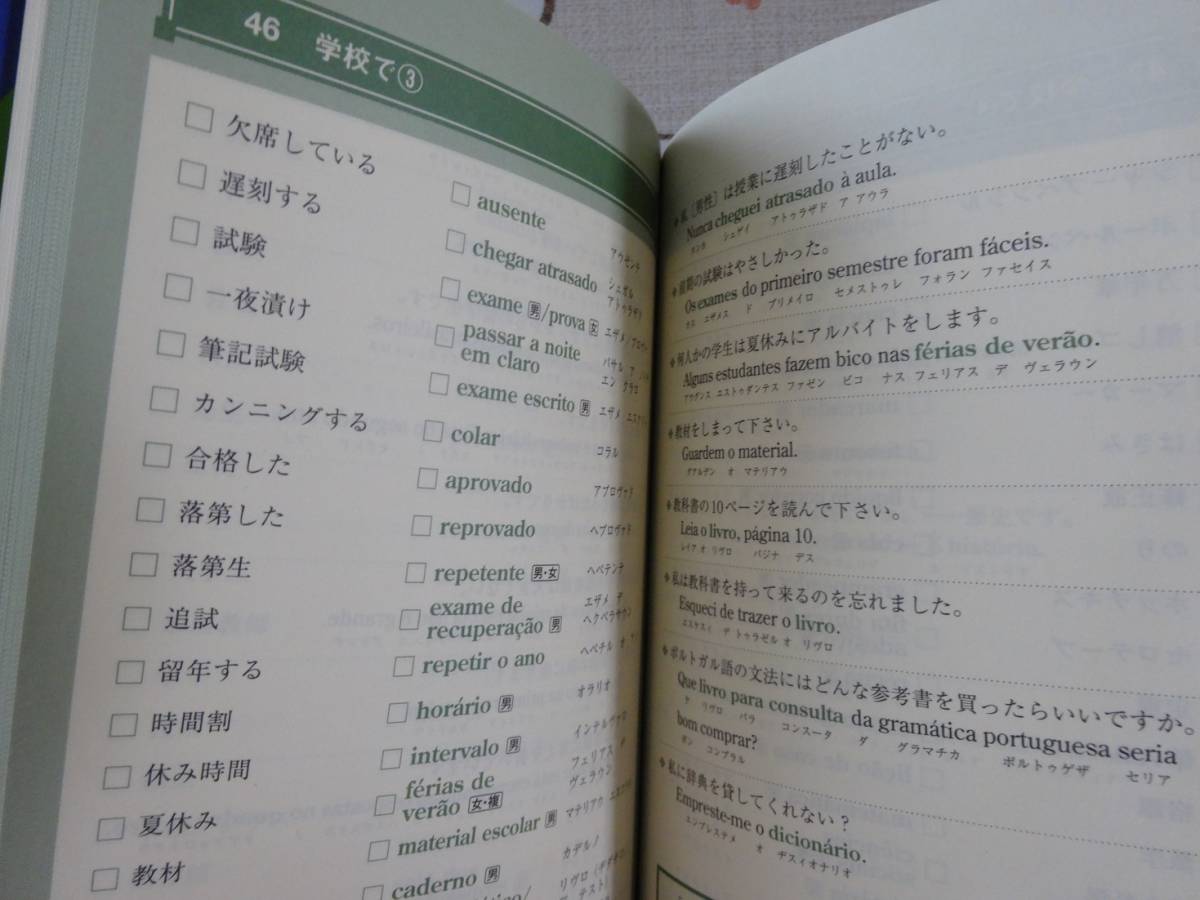 46 学校で③
欠席している
遅刻する
試験
一夜漬け
筆記試験
カンニングする
合格した
落第した
落第生
追試
留年する
時間割
休み時間
夏休み
教材
ausente アウゼンテ
chegar atrasado シェガル
アトゥラザド
exame 男/prova 女
passar a noite
em claro エン クラロ
exame escrito 男
colar コラル
aprovado アプロヴァド
reprovado ヘプロヴァド
repetente 男・女 ヘペテンテ
exame de エザメ デ
recuperação 男 ヘクペラサウン
repetir o ano
horário 男 オラリオ
intervalo 男 インテルヴァロ
férias de フェリアス デ
verão 女・複 ヴェラウン
material escolar 男
caderno 男 カデルノ
◆私〔男性〕は授業に遅刻したことがない。
Nunca cheguei atrasado à aula.
ヌンカ シェゲイ アトゥラザド ア アウラ
◆前期の試験はやさしかった。
Os exames do primeiro semestre foram fáceis.
オス エザメス ド プリメイロ セメストゥレ フォラン ファセイス
◆何人かの学生は夏休みにアルバイトをします。
Alguns estudantes fazem bico nas férias de verão.
アウグンス エストゥダンテス ファゼン ビコ ナス フェリアス デ ヴェラウン
◆教材をしまって下さい。
Guardem o material.
グアルデン オ マテリアウ
◆教科書の10ページを読んで下さい。
Leia o livro, página 10.
レイア オ リヴロ パジナ デス
◆私は教科書を持って来るのを忘れました。
Esqueci de trazer o livro.
エスケスィ デ トゥラゼル オ リヴロ
◆ポルトガル語の文法にはどんな参考書を買ったらいいですか。
Que livro para consulta da gramática portuguesa seria
ケ リヴロ パラ コンスータ ダ グラマチカ ポルトゥゲザ セリア
bom comprar?
ボン コンプラル
◆私に辞典を貸してくれない？
Empreste-me o dicionário.
エンプレステメ オ ヂスィオナリオ